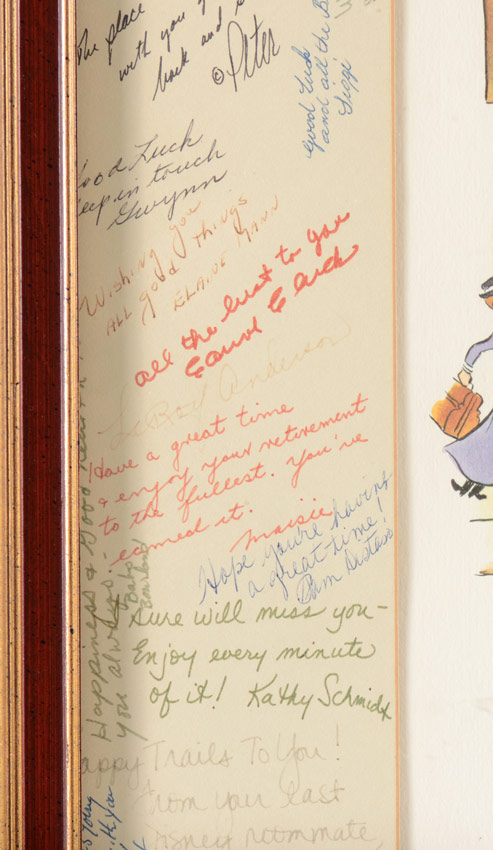 The place
with you
back and
© Peter
Good Luck
and all the B
Siggi
ood Luck
eep in touch
Gwynn
Wishing you
ALL good Things
ELAINE MANN
all the best to you
Carol
LeRoy Anderson
Have a great time
& enjoy your retirement
to the fullest. You've
earned it.
Maisie
Hope you're having
a great time!
Pam
Happiness & Good
you always.
Sure will miss you-
Enjoy every minute
of it! Kathy Schmidt
appy Trails To You!
From your last
isney roommate,